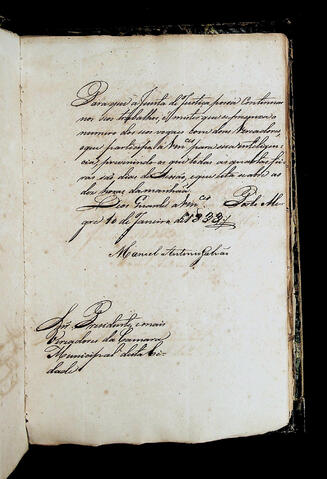 Para que a Junta de Justiça possa continuar
nos seus trabalhos, é mister que se preencha o
numero dos seus vogaes com dous Vereadores,
o que participo a Vm.ces para sua intelligen-
cia, prevenindo os que todas as quartas fei-
ras são dias de Sessão, que
des horas da manhãa.
Deos Guarde a Vm.ces Porto Ale-
gre 10 de Janeiro de 1833
Manoel Antonio Galvão
Snr. Presidente, e mais
Vereadores da Camara
Municipal desta Ci-
dade